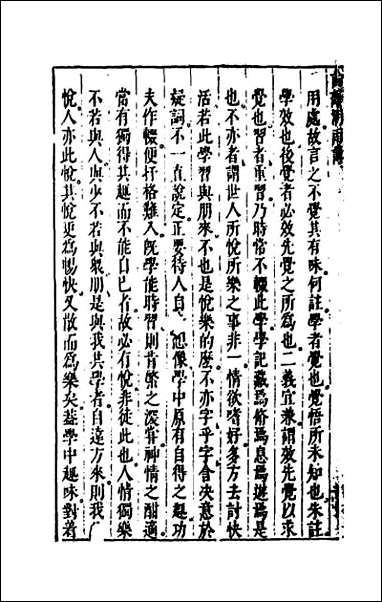 用處故言之不覺其有味何註學者覺也覺悟所未知也朱註
學效也後覺者必效先覺之所為也二義宜兼謂效先覺以求
覺也習者重習乃時常不輟此學學記藏焉脩焉息焉遊焉是
也不亦者謂世人所悅所樂之事非一情欲嗜好多方去討快
活若此學習與朋來不也是悅樂的麽不亦字乎字含決意於
疑詞不一直說定正要待人自想像學中原有自得之趣功
夫作輟便扞格難入旣學能時習則肯綮之深骨神情之酣適
當有獨得其趣而不能口已者故必有悅非徒此也人情獨樂
不若與人與少不若與衆朋是與我共學者自遠方來則我
悅人亦此悅其悅更為暢快又散而為樂矣葢學中趣味對着